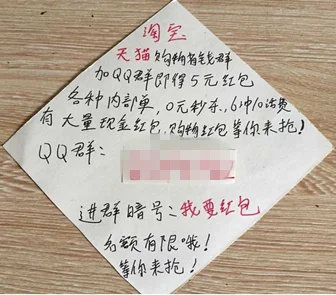 淘宝
天猫购物省钱群
加QQ群即得5元红包
各种内部单,0元秒杀,6冲10话费
有大量现金红包,购物红包等你来抢!
QQ群:
进群暗号:我要红包
名额有限哦!
等你来抢!